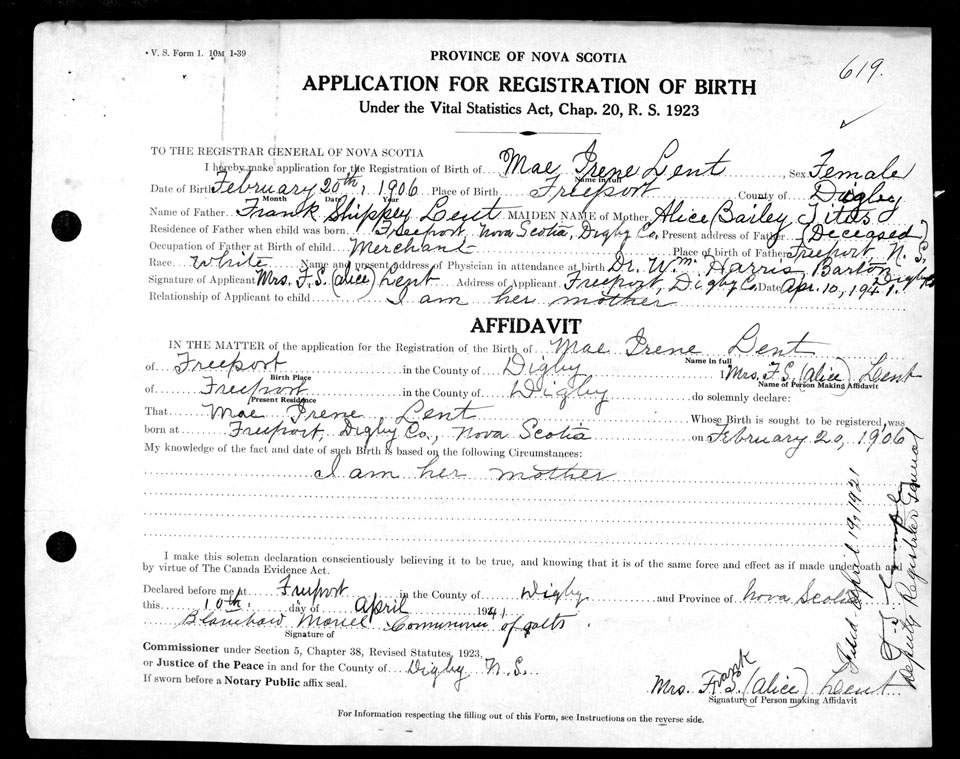 • V. S. Form 1. 10M 1-39
PROVINCE OF NOVA SCOTIA
619.
APPLICATION FOR REGISTRATION OF BIRTH
Under the Vital Statistics Act, Chap. 20, R. S. 1923
TO THE REGISTRAR GENERAL OF NOVA SCOTIA
I hereby make application for the Registration of Birth of Mae Irene Lent Sex Female
Name in full
Date of Birth February 20th, 1906 Place of Birth Freeport County of Digby
Month Date Year
Name of Father Frank Shippey Lent MAIDEN NAME of Mother Alice Bailey Titus
Residence of Father when child was born Freeport, Nova Scotia, Digby Co. Present address of Father (Deceased)
Occupation of Father at Birth of child Merchant Place of birth of Father Freeport, N. S.
Race White Name and present address of Physician in attendance at birth Dr. Wm. Harris Barton Digby Co
Signature of Applicant Mrs. F. S. (Alice) Lent Address of Applicant Freeport, Digby Co. Date Apr. 10, 1941.
Relationship of Applicant to child I am her mother
AFFIDAVIT
IN THE MATTER of the application for the Registration of the Birth of Mae Irene Lent
Name in full
of Freeport in the County of Digby I Mrs. F. S. (Alice) Lent
Birth Place Name of Person Making Affidavit
of Freeport in the County of Digby do solemnly declare:
Present Residence
That Mae Irene Lent Whose Birth is sought to be registered, was
born at Freeport, Digby Co., Nova Scotia on February 20, 1906
My knowledge of the fact and date of such Birth is based on the following Circumstances:
I am her mother
I make this solemn declaration conscientiously believing it to be true, and knowing that it is of the same force and effect as if made under oath and
by virtue of The Canada Evidence Act.
Declared before me at Freeport in the County of Digby and Province of Nova Scotia
this 10th. day of April 1941
Commissioner of oaths
Signature of
Commissioner under Section 5, Chapter 38, Revised Statutes, 1923.
or Justice of the Peace in and for the County of Digby N. S.
If sworn before a Notary Public affix seal.
Frank
Mrs. F. S. (Alice) Lent
Signature of Person making Affidavit
For Information respecting the filling out of this Form, see Instructions on the reverse side.
Filed April 19, 1921
Deputy Registrar General